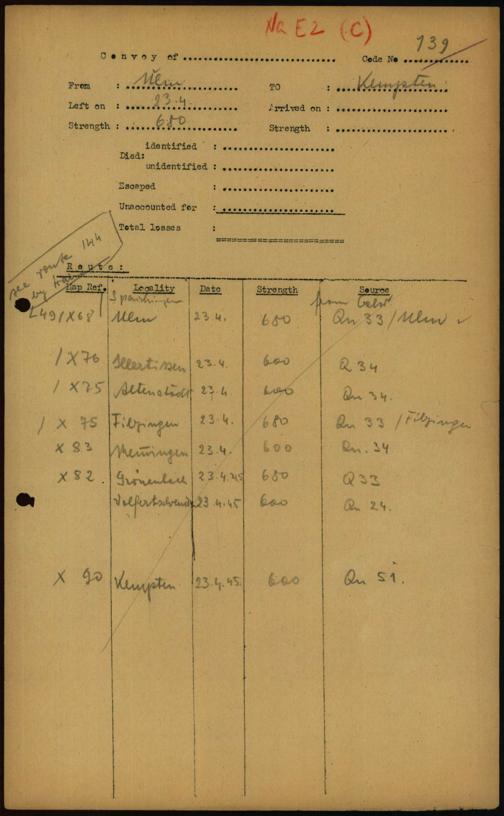 Na E2 (C)
139
Convoy of ........................ Code No ............
From : Ulm TO : Kempten
Left on : 23.4. Arrived on : ..................
Strength : 680 Strength : ..................
identified : ..................
Died:
unidentified : ..................
Escaped : ..................
Unaccounted for : ..................
Total losses :
see route 144
by train
Route:
Map Ref. Locality Date Strength Source
Spaichingen
L49/X68 Ulm 23.4. 680 Qu 33 / Ulm
/X76 Illertissen 23.4. 600 Q 34
/X75 Altenstadt 23.4 600 Qu 34.
/ X 75 Filzingen 23.4. 680 Qu 33 / Filzingen
X 83 Memmingen 23.4. 600 Qu. 34
X 82 Grönenbach 23.4.45 680 Q33
23.4.45 600 Qu 24.
X 90 Kempten 23.4.45. 600 Qu 51.